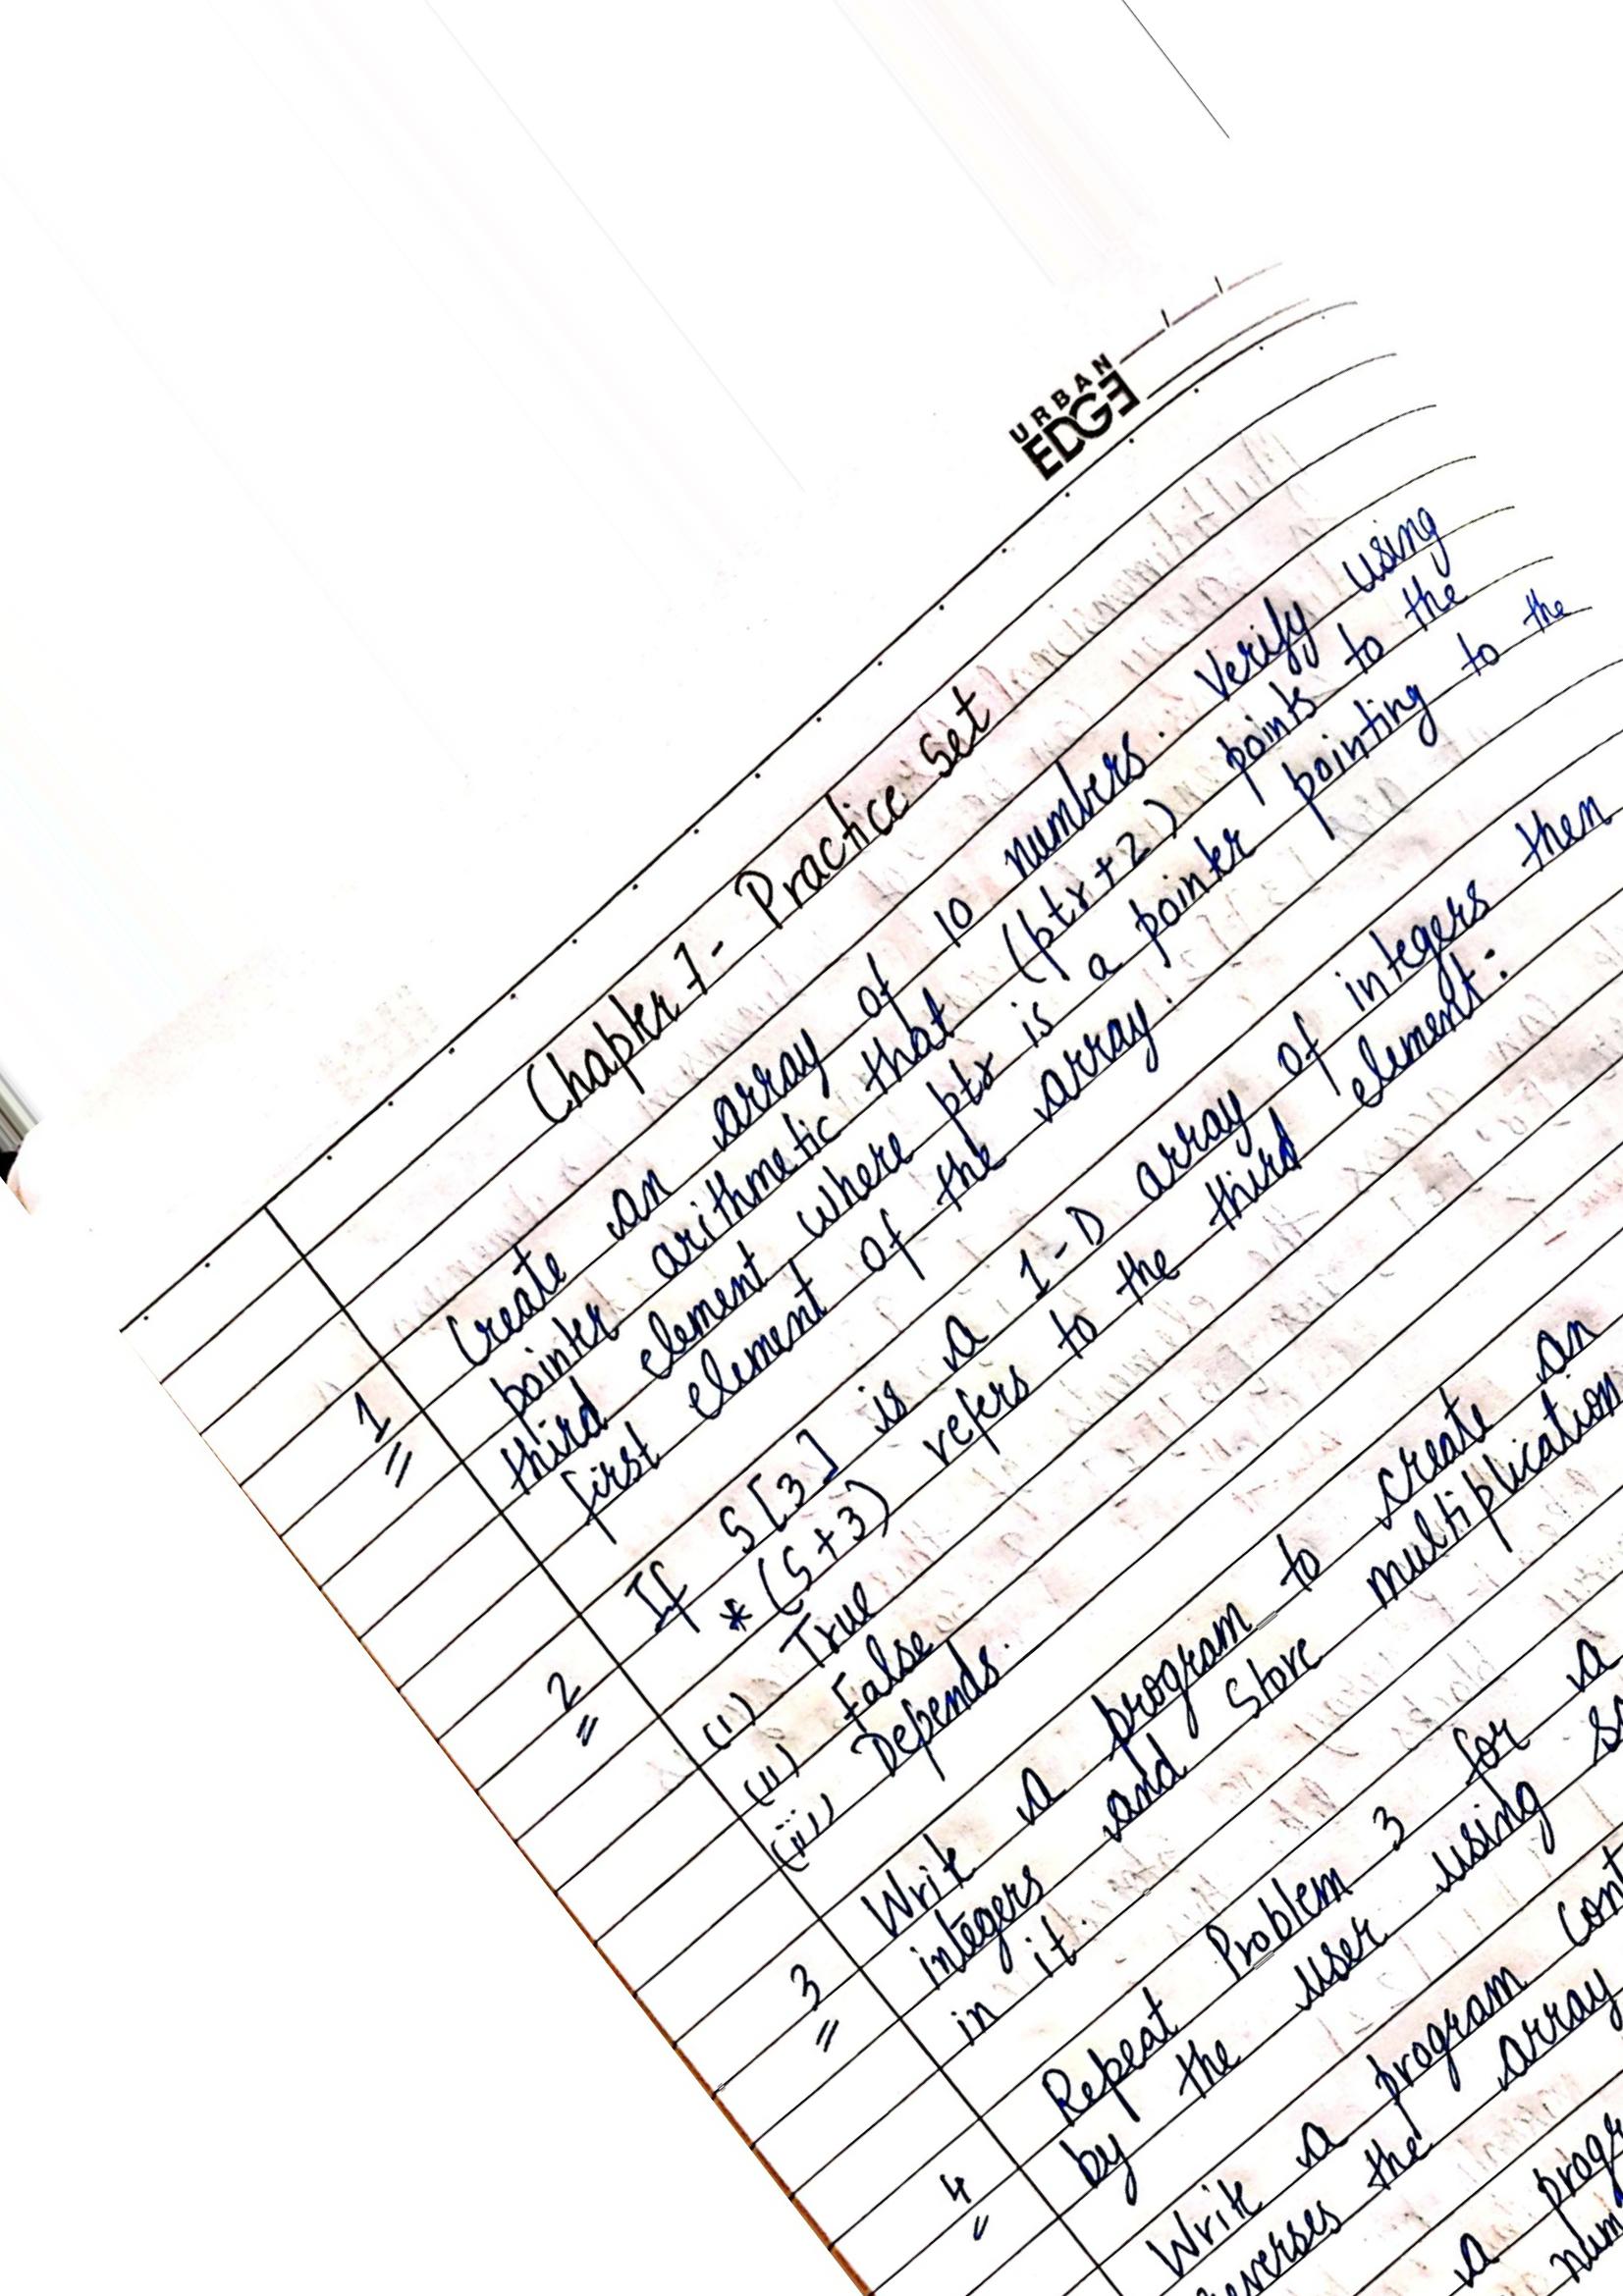 URBAN
EDGE
Chapter 7 - Practice Set
1 Create an array of 10 numbers. Verify using
pointer arithmetic that (ptr+2) points to the
third element where ptr is a pointer pointing to the
first element of the array.
2 If S[3] is a 1-D array of integers then
*(S+3) refers to the third element:
(i) True
(ii) False
(iii) Depends.
3 Write a program to create an
integers and store multiplication
in it.
4 Repeat Problem 3 for a
by the user using
Write a program
reverses the array
a